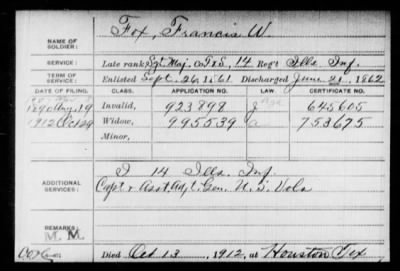 NAME OF SOLDIER: Fox, Francis W.
SERVICE: Late rank Sgt. Maj. Co. F&S, 14 Reg't Ills Inf.
TERM OF SERVICE: Enlisted Sept. 26, 1861 Discharged June 21, 1862
DATE OF FILING. CLASS. APPLICATION NO. LAW. CERTIFICATE NO.
19 Invalid, 923898 645605
1912 Oct 29 Widow, 995539 a 753675
Minor,
I 14 Ills. Inf.
ADDITIONAL SERVICES: Capt & Asst Adjt. Gen. U.S. Vols
REMARKS: M. M.
Died Oct 13, 1912, at Houston Tex